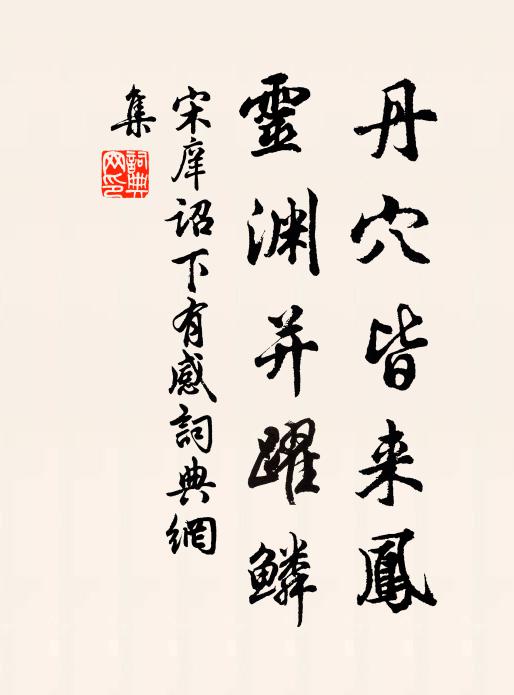 丹穴皆来鳳
靈渊并躍鱗
宋庠詔下有感詞典網
集
詞典网印